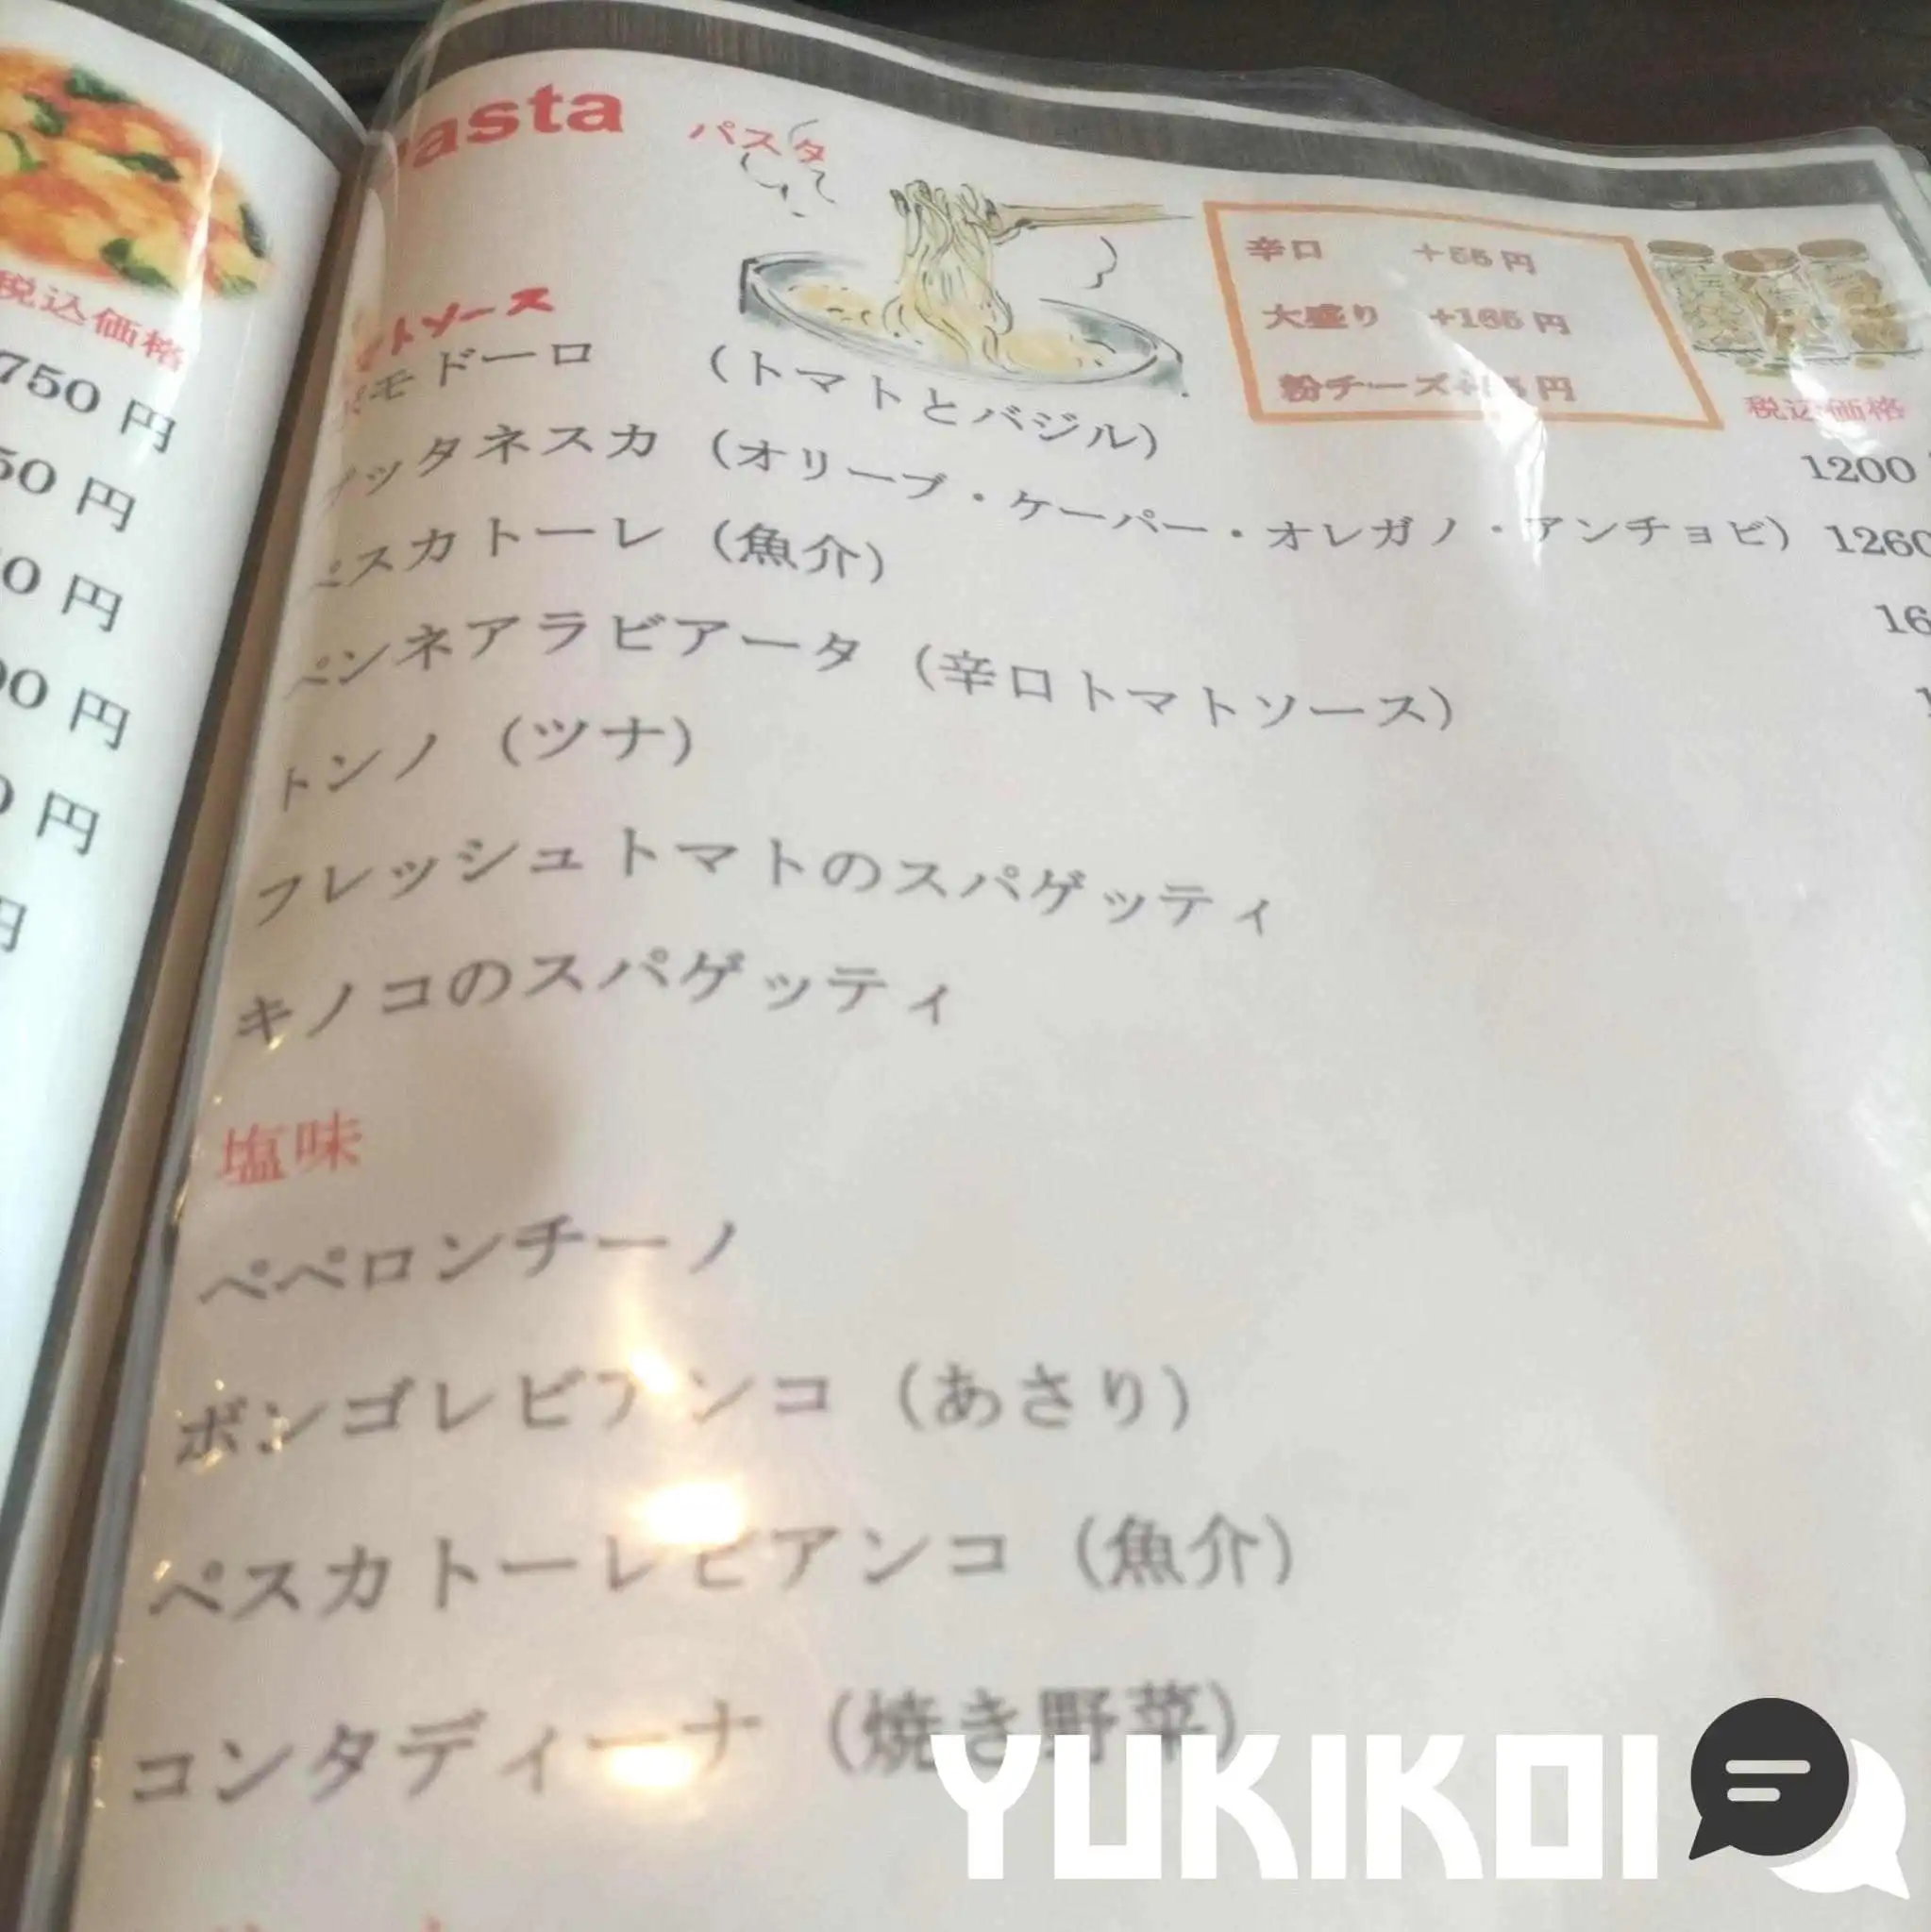 税込価格
750 円
50 円
0 円
00 円
0 円
円
asta パスタ
辛口 +55 円
大盛り +165 円
粉チーズ+ 円
税込価格
トマトソース
ポモドーロ (トマトとバジル) 1200
プッタネスカ (オリーブ・ケーパー・オレガノ・アンチョビ) 1260
ペスカトーレ (魚介) 16
ペンネアラビアータ (辛口トマトソース)
トンノ (ツナ)
フレッシュトマトのスパゲッティ
キノコのスパゲッティ
塩味
ペペロンチーノ
ボンゴレビアンコ (あさり)
ペスカトーレビアンコ (魚介)
コンタディーナ (焼き野菜)
YUKIKOI